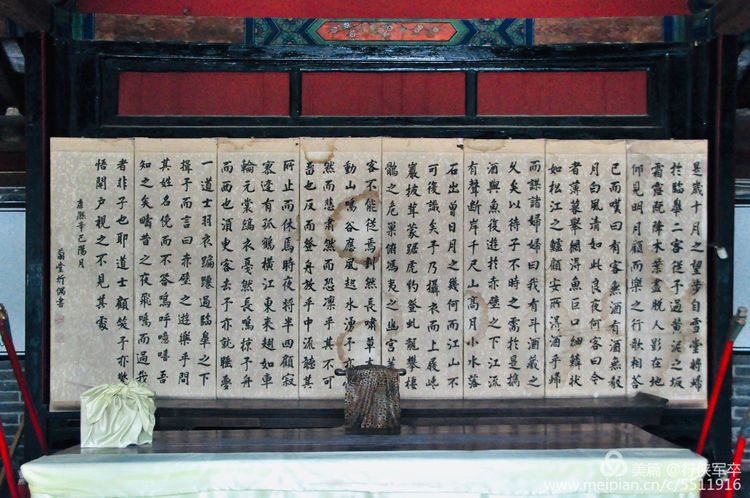 是歲十月之望步自雪堂將歸
於臨皋二客從予過黃泥之坂
霜露既降木葉盡脫人影在地
仰見明月顧而樂之行歌相答
已而嘆曰有客無酒有酒無殽
月白風清如此良夜何客曰今
者薄暮舉網得魚巨口細鱗狀
如松江之鱸顧安所得酒乎歸
而謀諸婦婦曰我有斗酒藏之
久矣以待子不時之需於是攜
酒與魚復遊於赤壁之下江流
有聲斷岸千尺山高月小水落
石出曾日月之幾何而江山不
可復識矣予乃攝衣而上履巉
巖披蒙茸踞虎豹登虬龍攀棲
鶻之危巢俯馮夷之幽宮蓋
客不能從焉劃然長嘯草木
動山鳴谷應風起水湧予
然而悲肅然而恐凜乎其不可
留也反而登舟放乎中流聽其
所止而休焉時夜將半四顧寂
寥適有孤鶴橫江東來翅如車
輪元裳縞衣戛然長鳴掠予舟
而西也須臾客去予亦就睡夢
一道士羽衣蹁躚過臨皋之下
揖予而言曰赤壁之遊樂乎問
其姓名俛而不答嗚呼噫嘻吾
知之矣疇昔之夜飛鳴而過我
者非子也耶道士顧笑予亦驚
悟開戶視之不見其處
康熙辛巳陽月
堂折偶書
美篇 @行侠军卒
www.meipian.cn/c/5511916